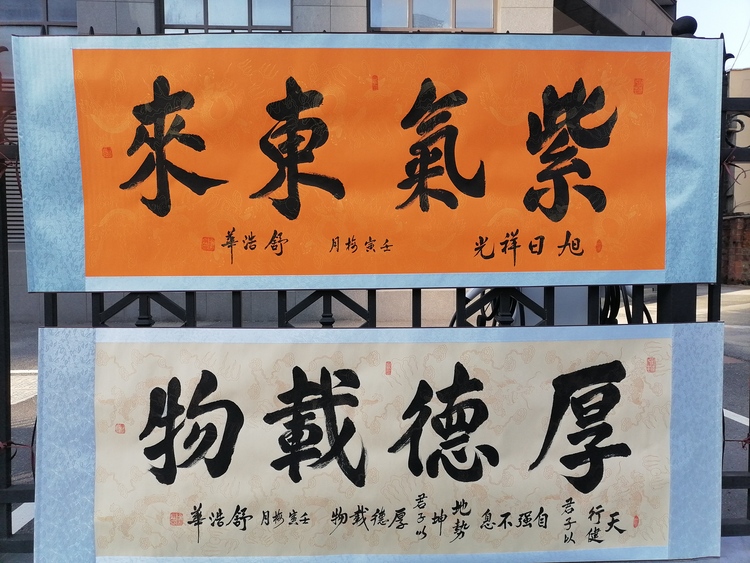 紫氣東來
旭日祥光 壬寅梅月 舒浩華
厚德載物
天行健君子以自强不息地勢坤君子以厚德載物 壬寅梅月 舒浩華